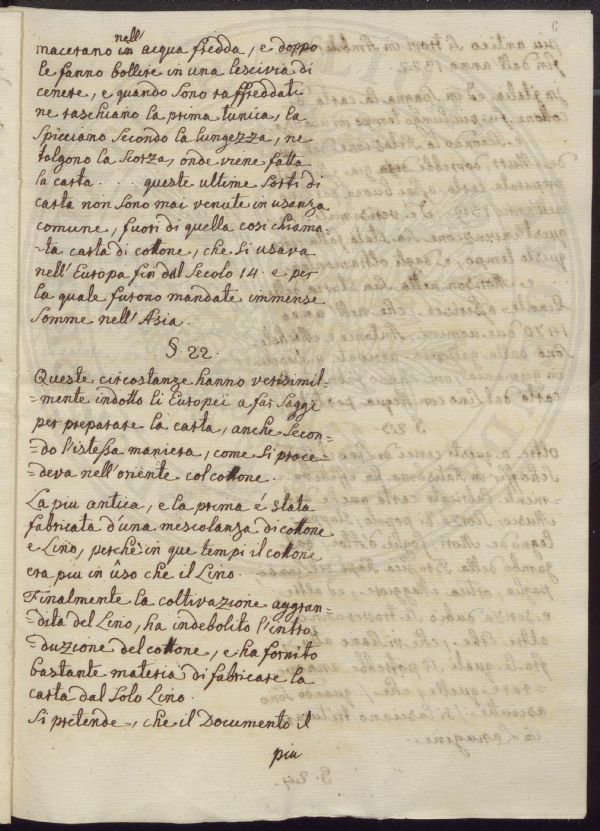 6
nell'
macerano in acqua fredda, e doppo
le fanno bollire in una lescivia di
cenere, e quando sono raffreddati
ne raschiano la prima tunica, la
spicciano secondo la lungezza, ne
tolgono la scorza, onde viene fatta
la carta . . . queste ultime sorti di
carta non sono mai venute in usanza
comune, fuori di quella così chiama-
-ta carta di cottone, che si usava
nell' Europa fin dal Secolo 14. e per
la quale furono mandate immense
somme nell' Asia.
§. 22.
Queste circostanze hanno verisimil-
=mente indotto li Europei a far saggi
per preparare la carta, anche secon-
=do l'istessa maniera, come si proce-
=deva nell'oriente col cottone.
La piu antica, e la prima é stata
fabricata d'una mescolanza di cottone
e Lino, perchè in que tempi il cottone
era piu in ûso che il Lino.
Finalmente la coltivazione aggran-
=dita del Lino, ha indebolito l'intro-
=duzione del cottone, e ha fornito
bastante materia di fabricare la
carta dal solo Lino.
Si pretende, che il Documento il
piu